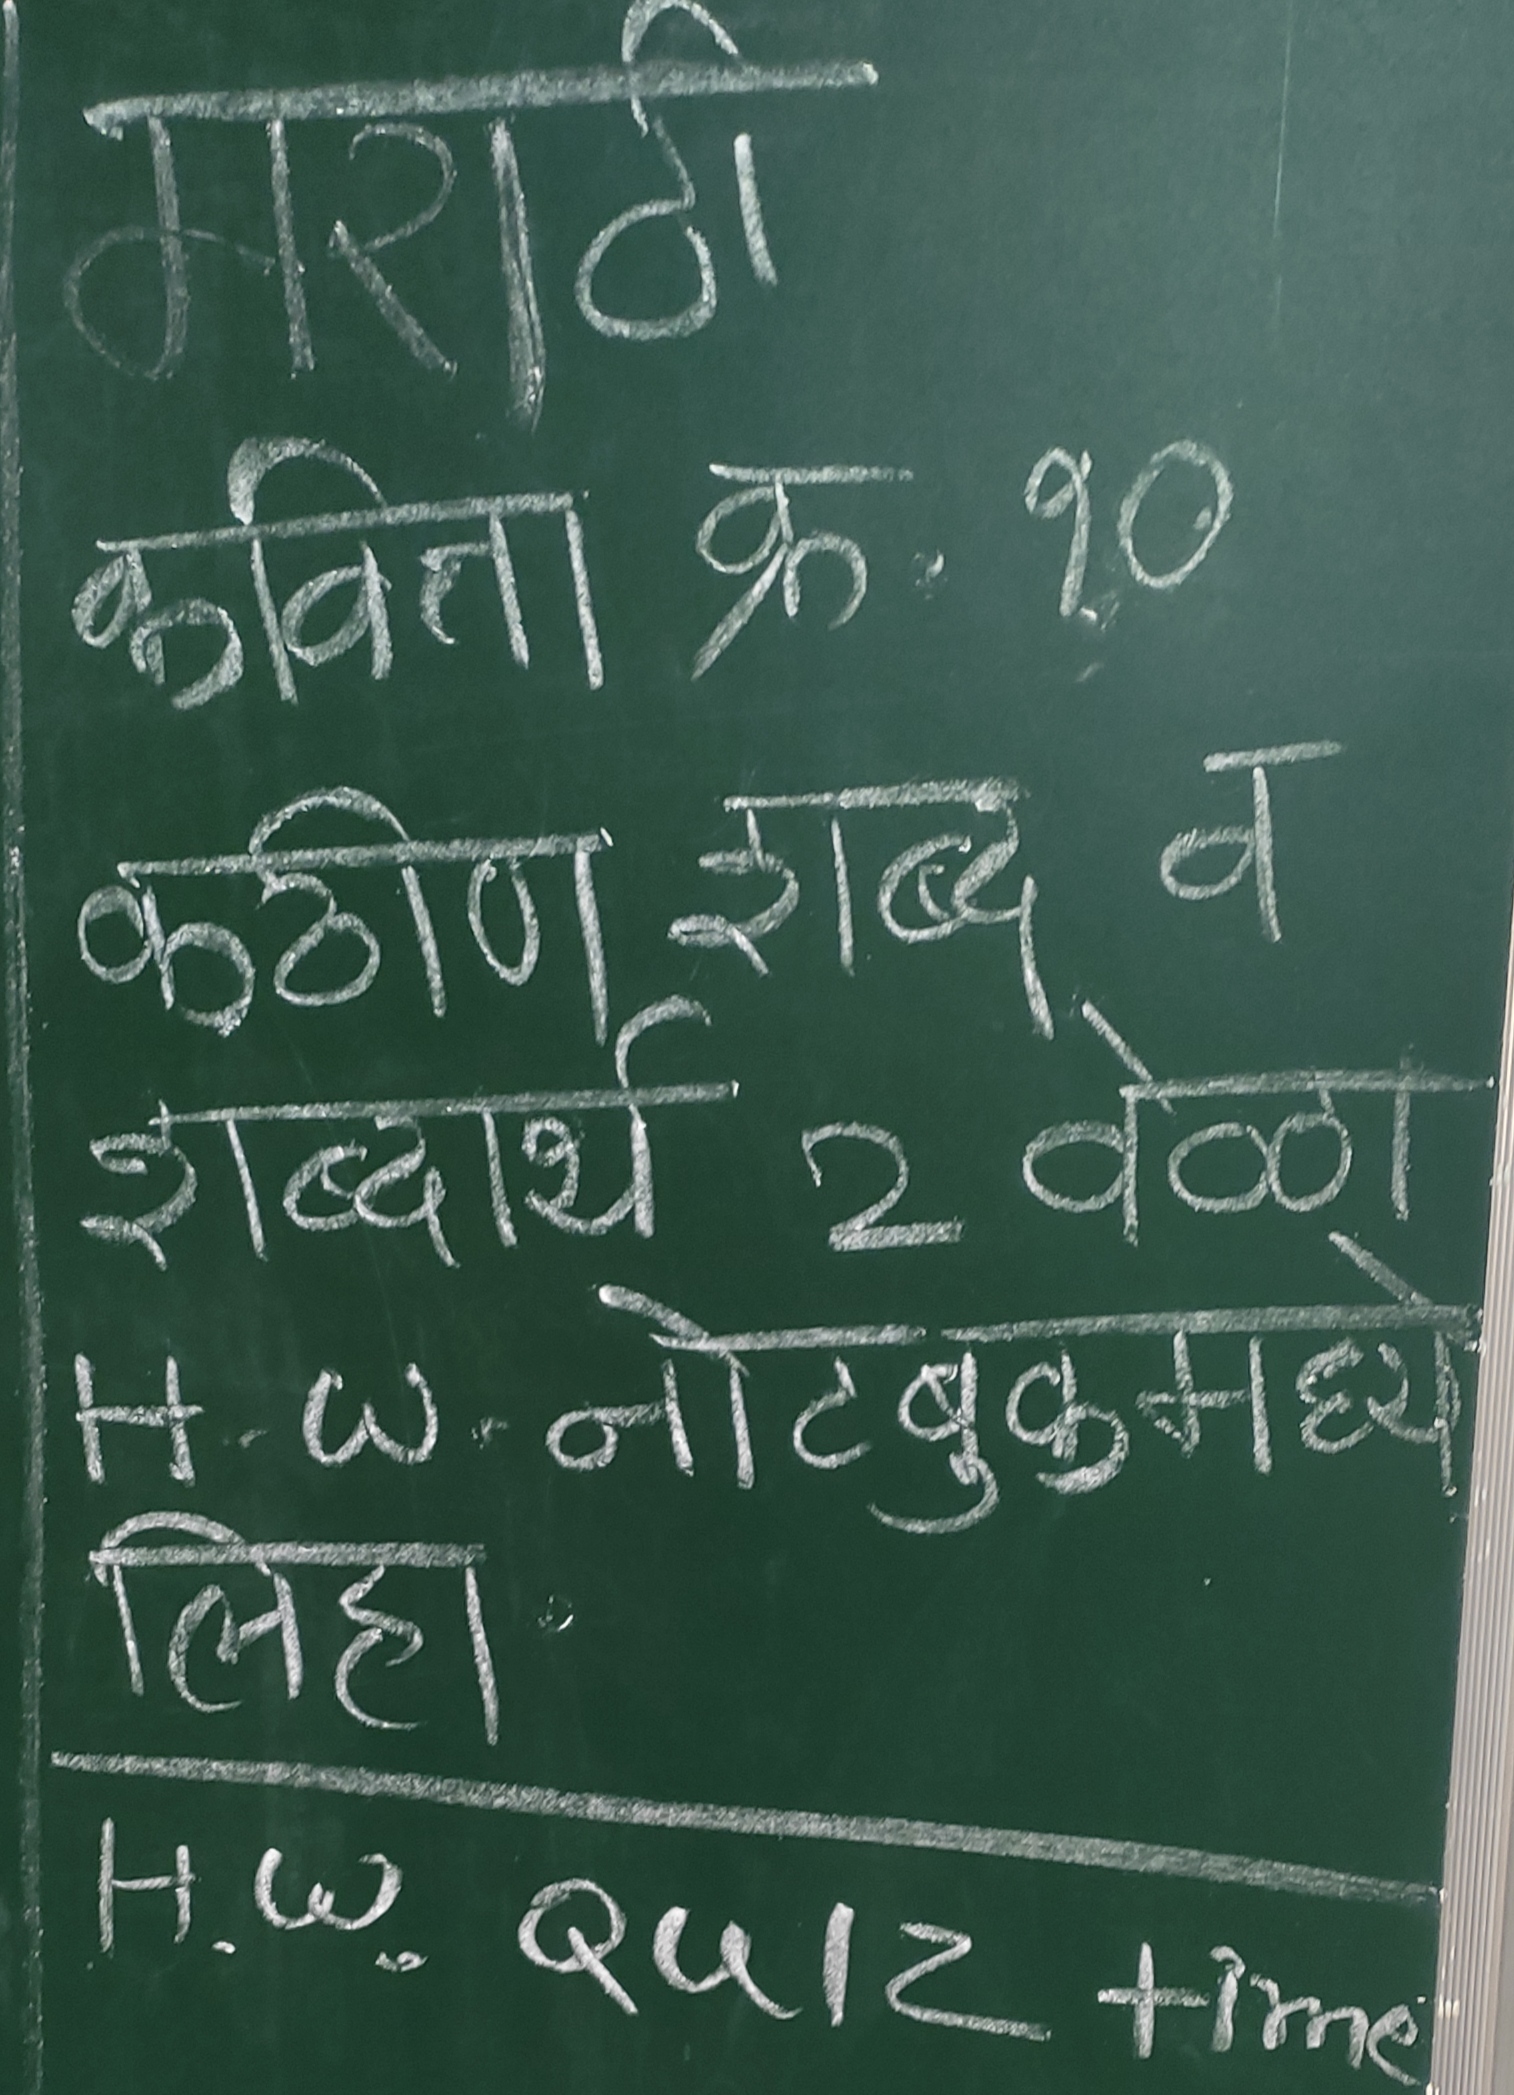 मराठी
कविता क्र. १०
कठीण शब्द व
शब्दार्थ 2 वेळा
H.W. नोटबुकमध्ये
लिहा.
H.W. QUIZ time